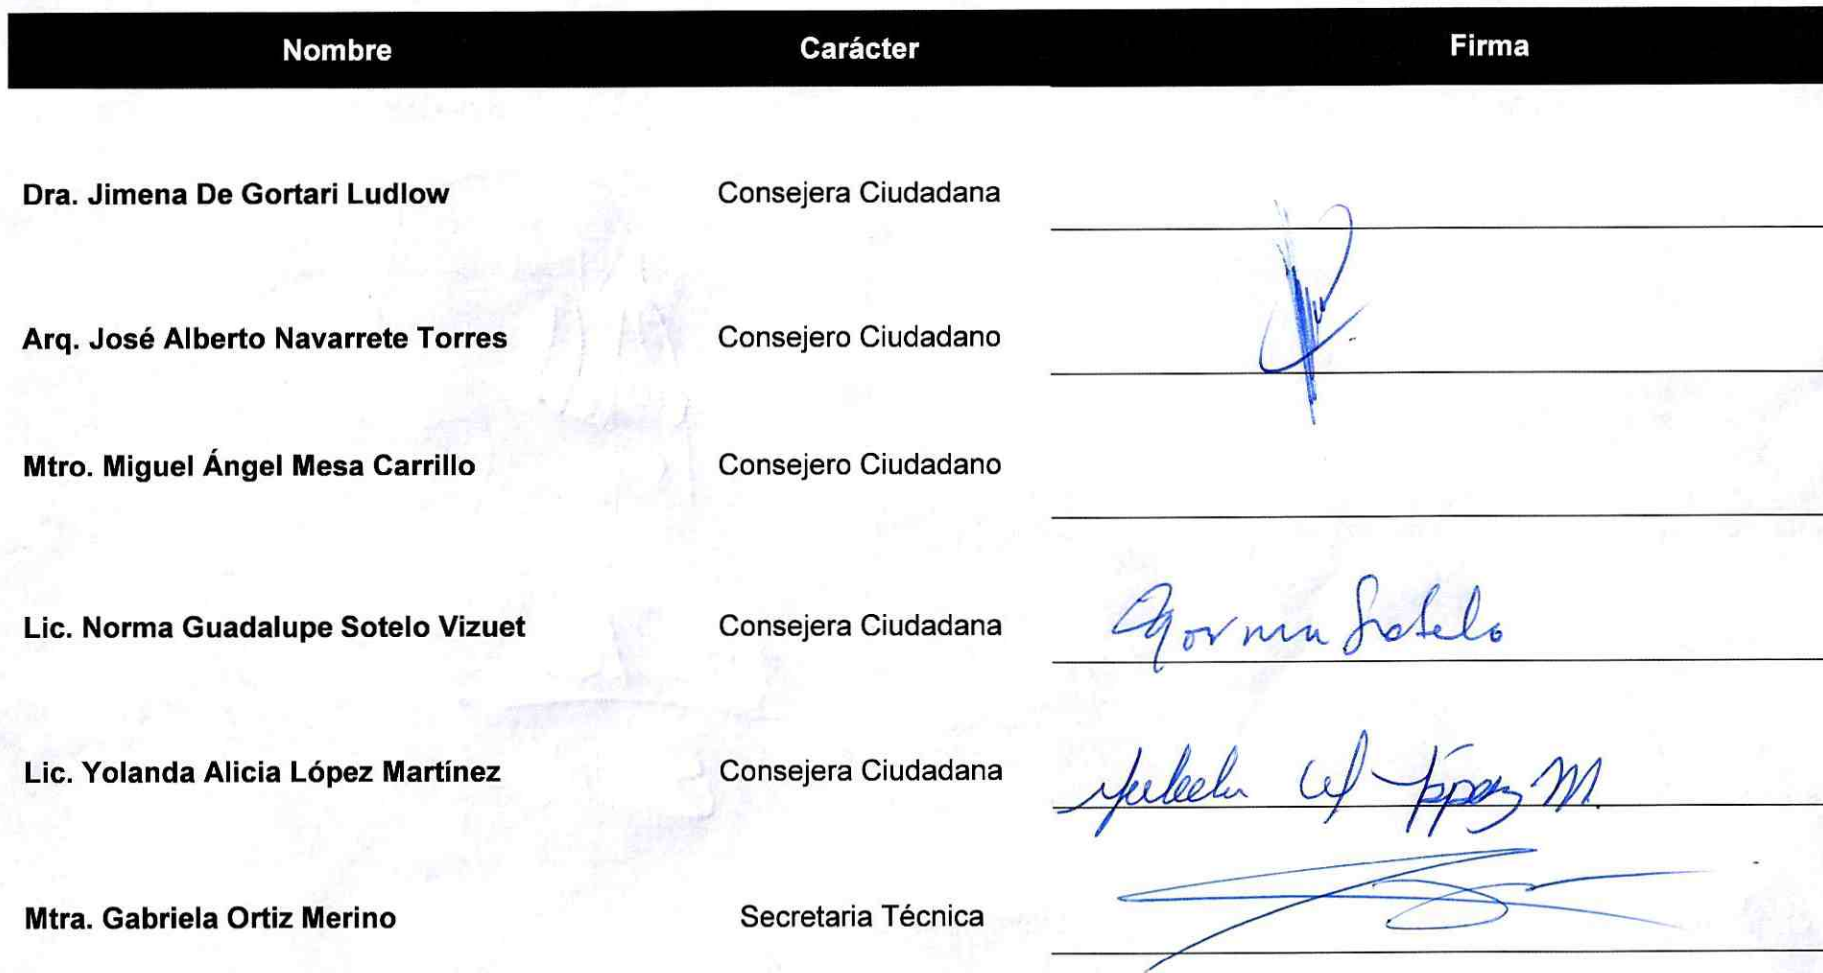 Nombre Carácter Firma
Dra. Jimena De Gortari Ludlow Consejera Ciudadana
Arq. José Alberto Navarrete Torres Consejero Ciudadano
Mtro. Miguel Ángel Mesa Carrillo Consejero Ciudadano
Lic. Norma Guadalupe Sotelo Vizuet Consejera Ciudadana Norma Sotelo
Lic. Yolanda Alicia López Martínez Consejera Ciudadana López M.
Mtra. Gabriela Ortiz Merino Secretaria Técnica